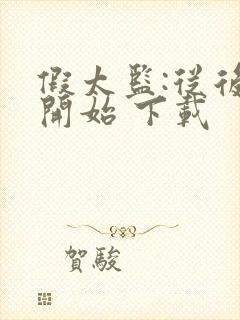 假太監:從後
開始 下載
賀駿